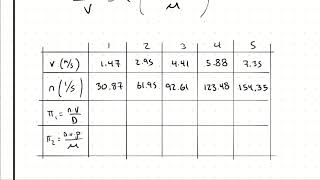 V μ
1 2 3 4 5
V (m/s) 1.47 2.95 4.41 5.88 7.35
n (1/s) 30.87 61.95 92.61 123.48 154.35
π₁ = n·V / D
π₂ = D·V·ρ / μ